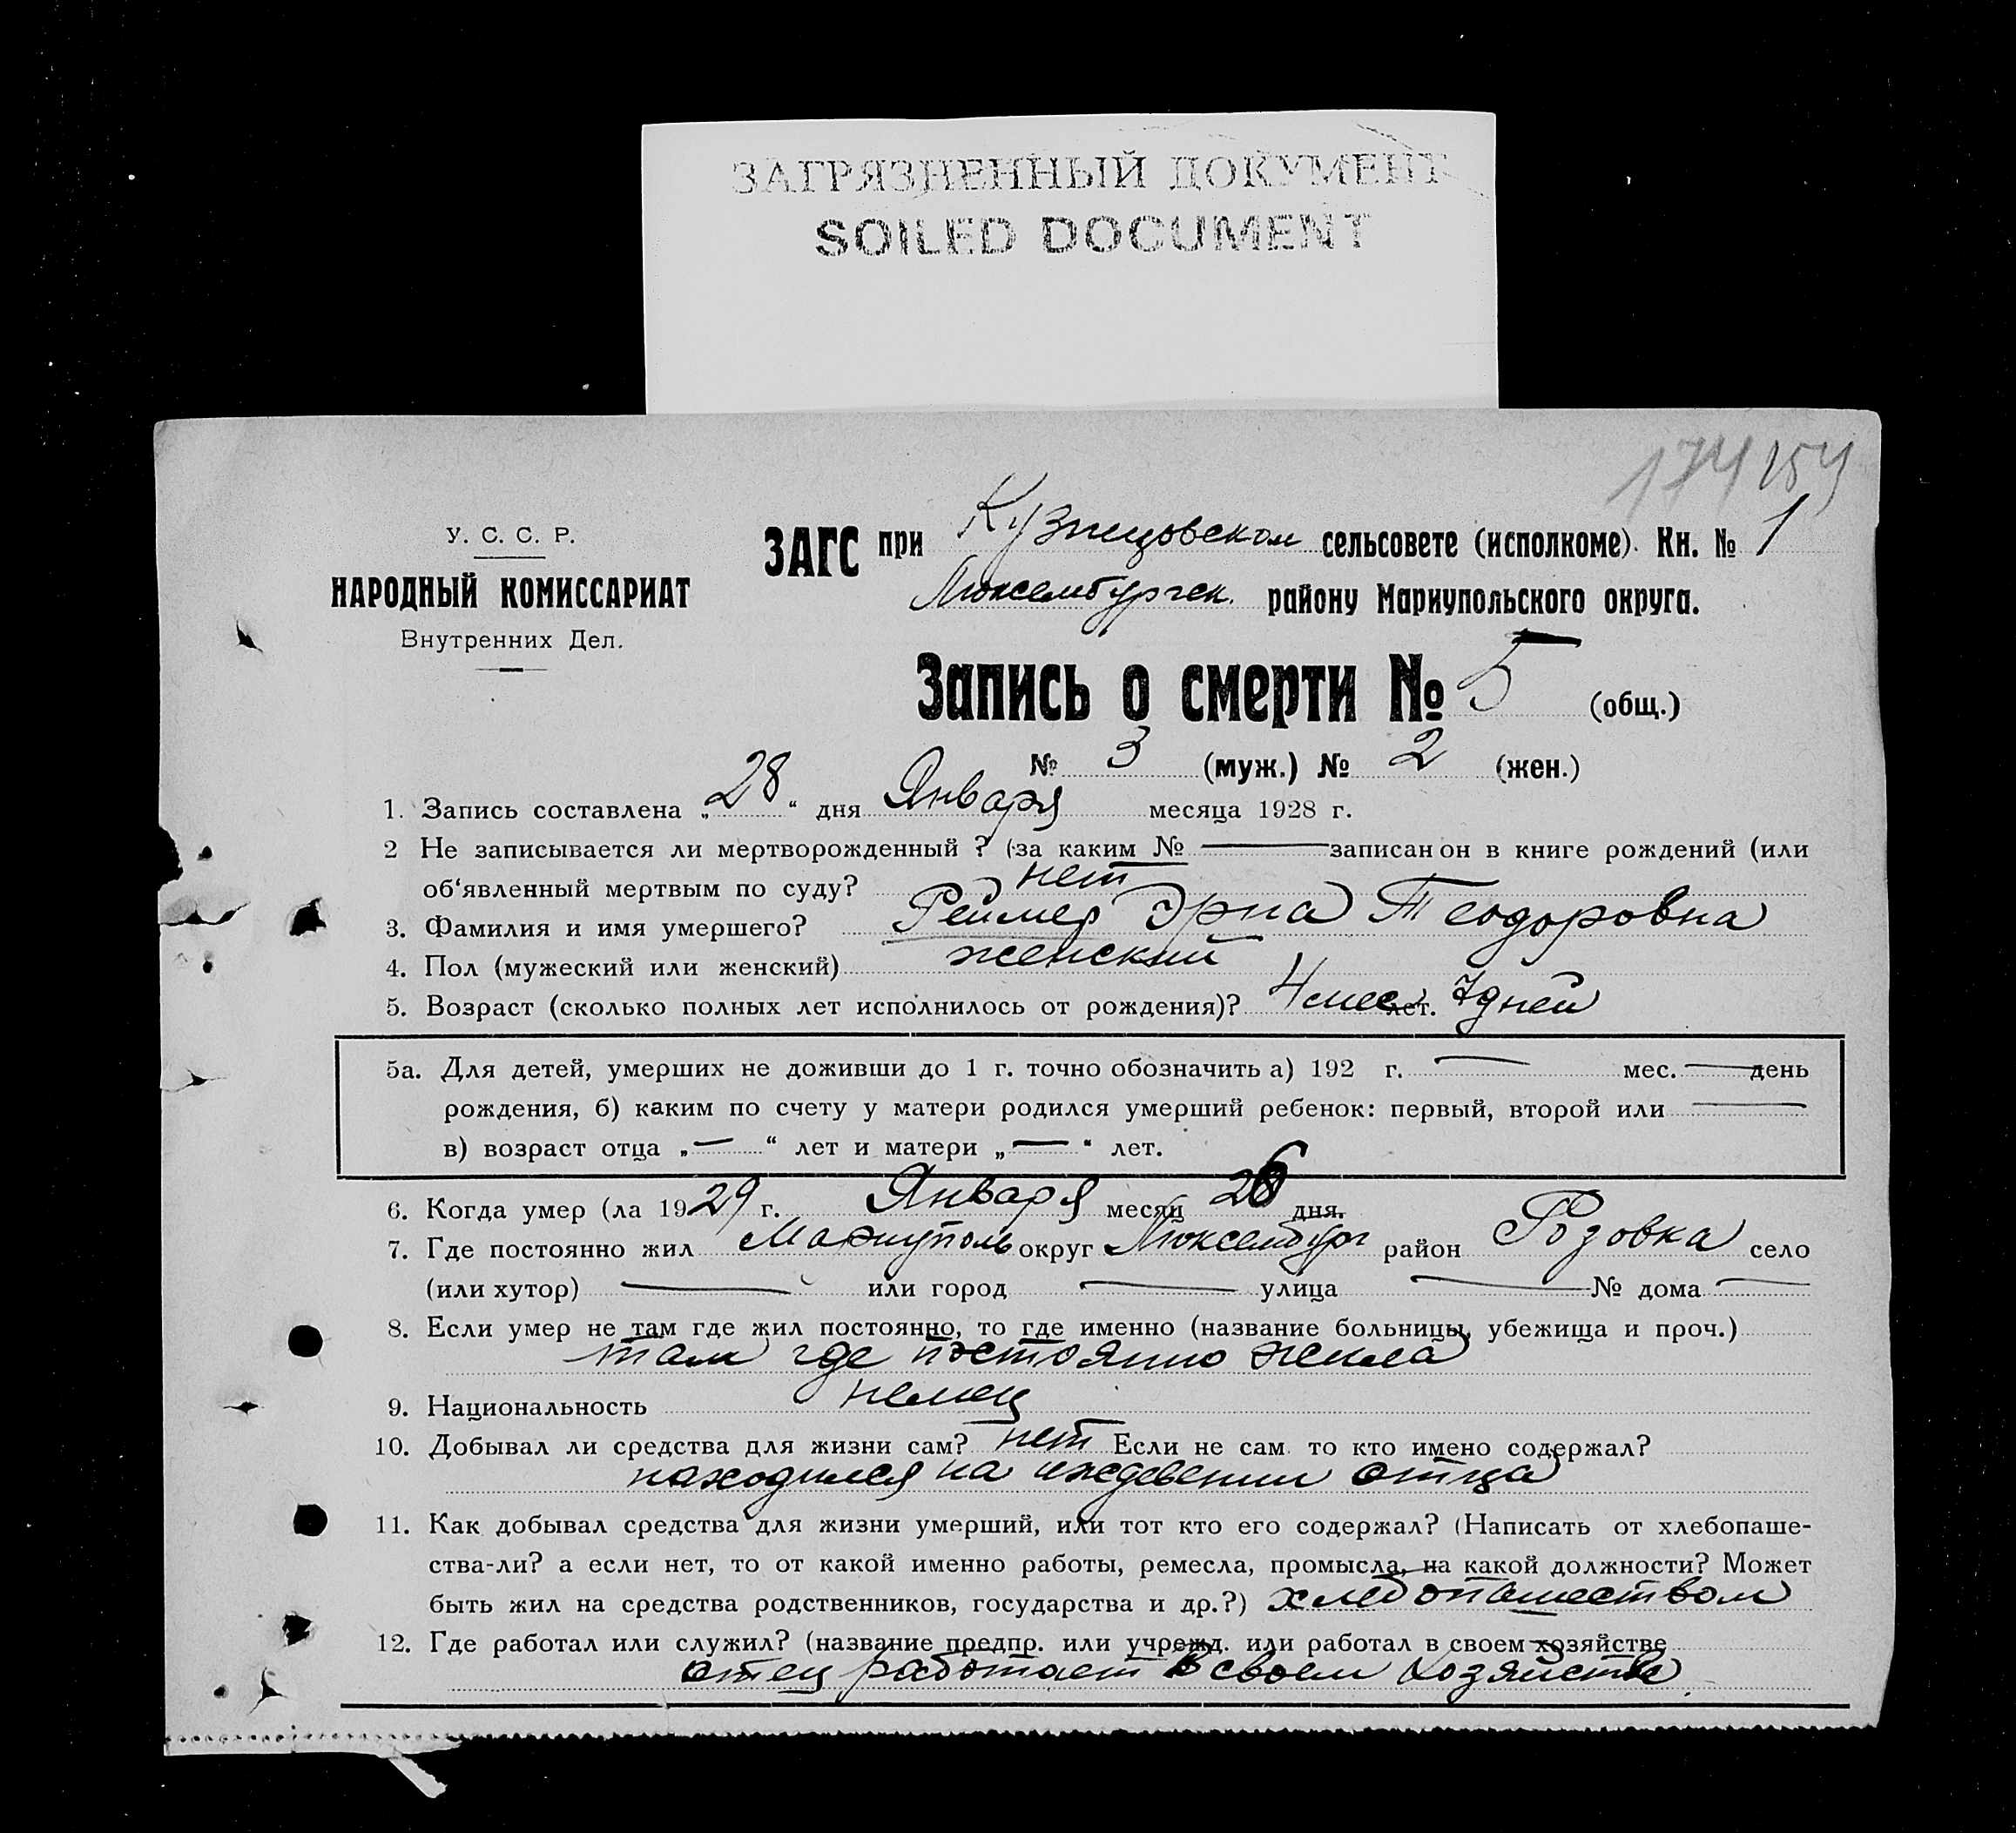 ЗАГРЯЗНЕННЫЙ ДОКУМЕНТ
SOILED DOCUMENT
174 154
У. С. С. Р.
НАРОДНЫЙ КОМИССАРИАТ
Внутренних Дел.
ЗАГС при Кузнецовском сельсовете (исполкоме). Кн. № 1
Люксембургск. району Мариупольского округа.
Запись о смерти № 5 (общ.)
№ 3 (муж.) № 2 (жен.)
1. Запись составлена „28“ дня Января месяца 1928 г.
2 Не записывается ли мертворожденный ? (за каким № — записан он в книге рождений (или
об‘явленный мертвым по суду? нет
3. Фамилия и имя умершего? Реймер Эрна Теодоровна
4. Пол (мужеский или женский) женский
5. Возраст (сколько полных лет исполнилось от рождения)? 4 мес лет. 7 дней
5а. Для детей, умерших не доживши до 1 г. точно обозначить а) 192 г. — мес. — день
рождения, б) каким по счету у матери родился умерший ребенок: первый, второй или —
в) возраст отца „—“ лет и матери „—“ лет.
6. Когда умер (ла 1929 г. Января месяц 26 дня.
7. Где постоянно жил Мариуполь округ Люксембург район Розовка село
(или хутор) — или город — улица — № дома —
8. Если умер не там где жил постоянно, то где именно (название больницы, убежища и проч.)
там где постоянно жила
9. Национальность немец
10. Добывал ли средства для жизни сам? нет Если не сам то кто имено содержал?
находился на иждевении отца
11. Как добывал средства для жизни умерший, или тот кто его содержал? (Написать от хлебопаше-
ства-ли? а если нет, то от какой именно работы, ремесла, промысла, на какой должности? Может
быть жил на средства родственников, государства и др.?) хлебопашеством
12. Где работал или служил? (название предпр. или учрежд. или работал в своем хозяйстве
отец работает в своем хозяйстве